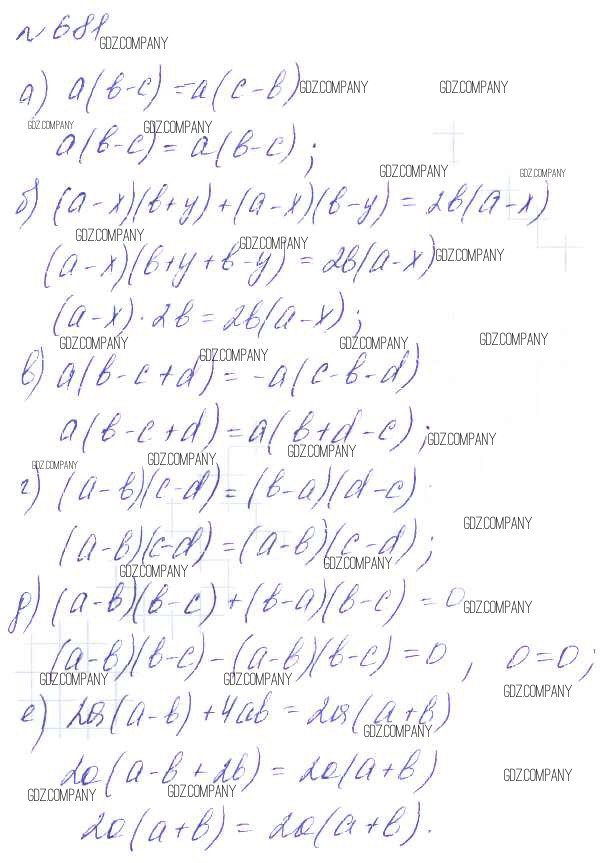 №681
GDZ.COMPANY
а) a(b-c) = -a(c-b)
GDZ.COMPANY GDZ.COMPANY
GDZ.COMPANY GDZ.COMPANY
a(b-c) = a(b-c);
GDZ.COMPANY GDZ.COMPANY
б) (a-x)(b+y)+(a-x)(b-y) = 2b(a-x)
GDZ.COMPANY GDZ.COMPANY GDZ.COMPANY
(a-x)(b+y+b-y) = 2b(a-x)
(a-x)·2b = 2b(a-x);
GDZ.COMPANY GDZ.COMPANY GDZ.COMPANY GDZ.COMPANY
в) a(b-c+d) = -a(c-b-d)
a(b-c+d) = a(b+d-c);
GDZ.COMPANY
GDZ.COMPANY GDZ.COMPANY GDZ.COMPANY
г) (a-b)(c-d) = (b-a)(d-c)
GDZ.COMPANY
(a-b)(c-d) = (a-b)(c-d);
GDZ.COMPANY GDZ.COMPANY
д) (a-b)(b-c)+(b-a)(b-c) = 0
GDZ.COMPANY
(a-b)(b-c)-(a-b)(b-c) = 0, 0=0;
GDZ.COMPANY GDZ.COMPANY GDZ.COMPANY
е) 2a(a-b)+4ab = 2a(a+b)
GDZ.COMPANY
2a(a-b+2b) = 2a(a+b)
GDZ.COMPANY
GDZ.COMPANY GDZ.COMPANY
2a(a+b) = 2a(a+b).